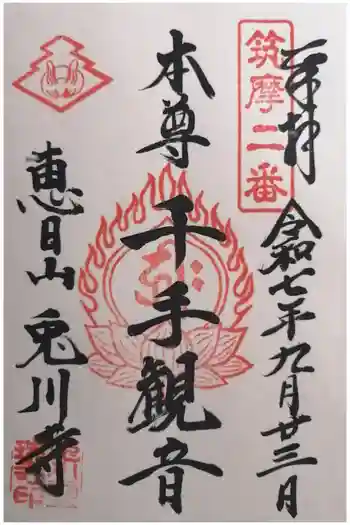 奉拝
筑摩二番
令和七年九月廿三日
本尊
千手観音
恵日山
兎川寺